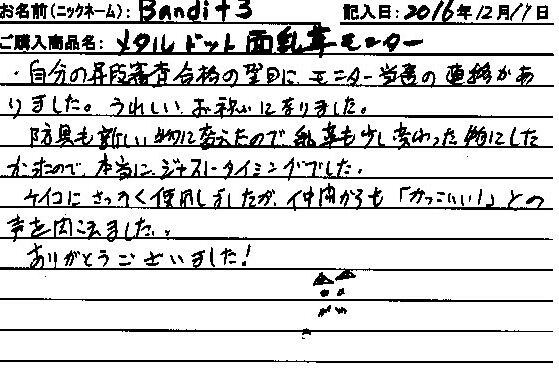 お名前(ニックネーム): Bandit3 記入日: 2016年12月17日
ご購入商品名: メタルドット面乳革モニター
・自分の昇段審査合格の翌日に、モニター当選の連絡があ
りました。うれしいお祝いになりました。
防具も新しい物に変えたので、乳革も少し変わった物にした
かったので、本当にジャストタイミングでした。
ケイコにさっそく使用しましたが、仲間からも「かっこいい!」との
声を聞こえました。
ありがとうございました!